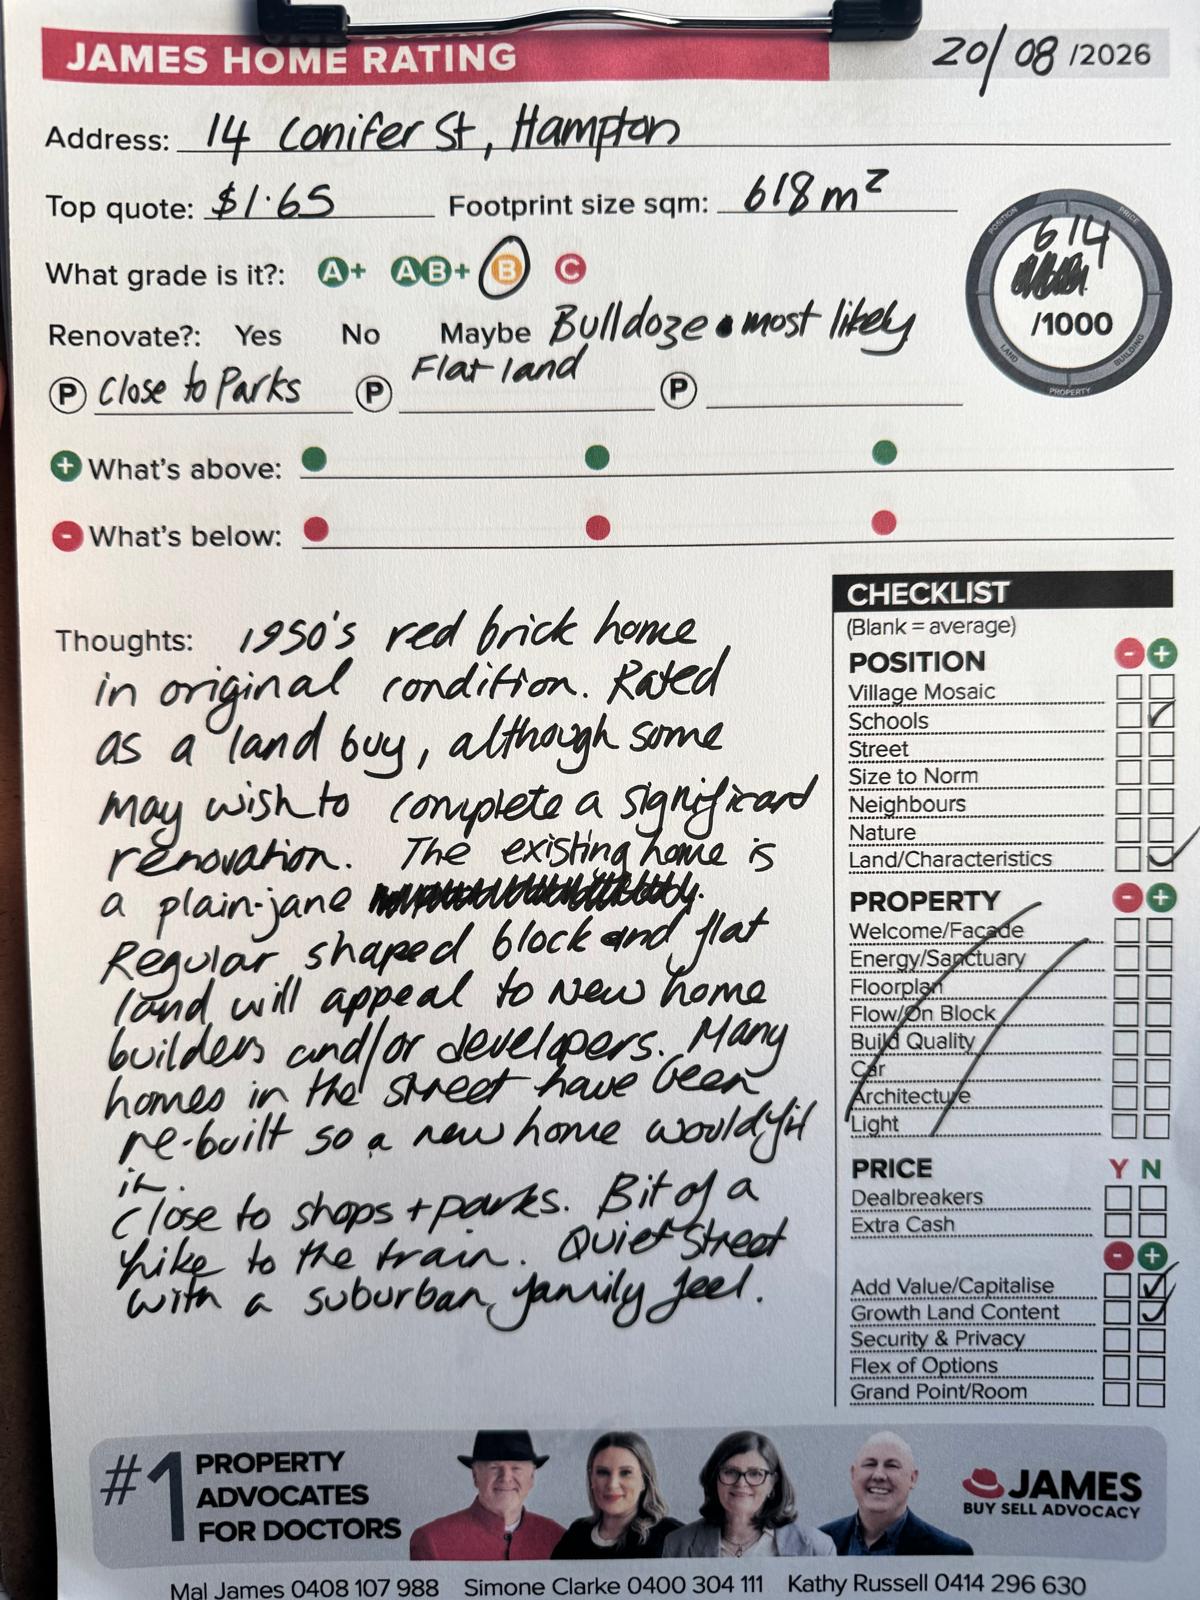 JAMES HOME RATING 20/08/2026
Address: 14 Conifer St, Hampton
Top quote: $1.65 Footprint size sqm: 618m²
What grade is it?: A+ AB+ B C
614
/1000
POSITION PRICE LAND BUILDING PROPERTY
Renovate?: Yes No Maybe Bulldoze most likely
P Close to Parks P Flat land P
+ What's above:
- What's below:
Thoughts: 1950's red brick home
in original condition. Rated
as a land buy, although some
may wish to complete a significant
renovation. The existing home is
a plain-jane
Regular shaped block and flat
land will appeal to new home
builders and/or developers. Many
homes in the street have been
re-built so a new home would fit
in.
Close to shops + parks. Bit of a
hike to the train. Quiet Street
with a suburban, family feel.
CHECKLIST
(Blank = average)
POSITION - +
Village Mosaic
Schools
Street
Size to Norm
Neighbours
Nature
Land/Characteristics
PROPERTY - +
Welcome/Facade
Energy/Sanctuary
Floorplan
Flow/On Block
Build Quality
Car
Architecture
Light
PRICE Y N
Dealbreakers
Extra Cash
- +
Add Value/Capitalise
Growth Land Content
Security & Privacy
Flex of Options
Grand Point/Room
#1 PROPERTY
ADVOCATES
FOR DOCTORS
JAMES
BUY SELL ADVOCACY
Mal James 0408 107 988 Simone Clarke 0400 304 111 Kathy Russell 0414 296 630